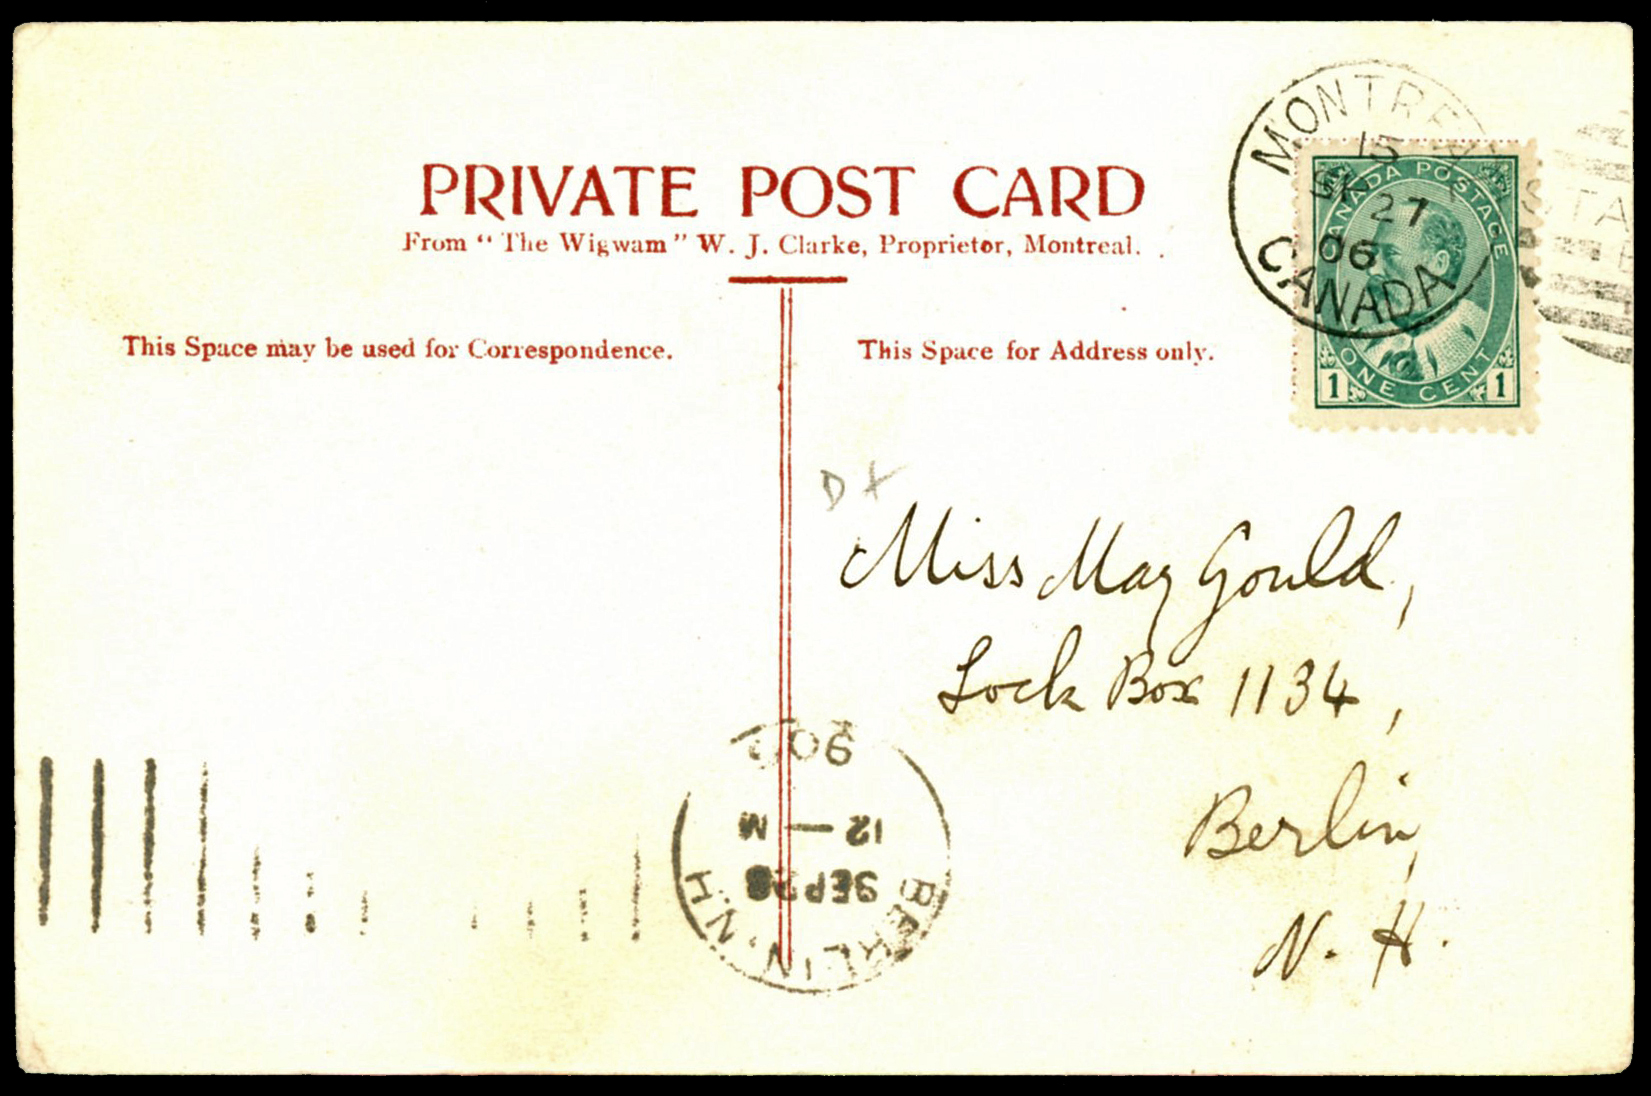 PRIVATE POST CARD
From "The Wigwam" W. J. Clarke, Proprietor, Montreal.
This Space may be used for Correspondence.
This Space for Address only.
MONTREAL
15
27
06
CANADA
CANADA POSTAGE
ONE CENT
1 1
Miss May Gould,
Lock Box 1134,
Berlin,
N. H.
BERLIN, N.H.
SEP 28
12 — M